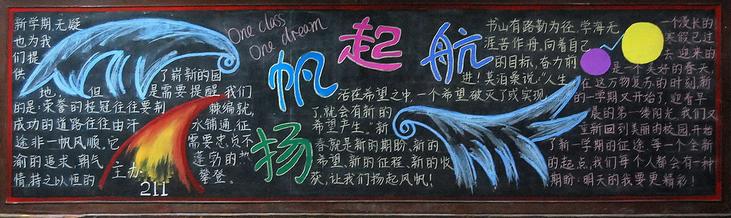 新学期,无疑
也为我
们提
供 了崭新的园
地, 但 是需要提醒 我们
的是:荣誉的桂冠往往要荆 棘编就,
成功的道路往往由汗 水铺通,征
途非一帆风顺,它 需要忠贞不
渝的追求,朝气 蓬勃的热
情,持之以恒的 攀登。
主办:
211
One class
One dream
扬帆起航
书山有路勤为径,学海无
涯苦作舟,向着自己
的目标,奋力前
进!莫泊桑说:“人生
活在希望之中,一个希望破灭了或实现
了,就会有新的
希望产生。”新
春就是新的期盼、新的
希望、新的征程、新的收
获,让我们扬起风帆!
一个漫长的
寒假已过
去,迎来的
是一个美好的春天,
在这万物复苏的时刻,新
的一学期又开始了,迎着早
晨的第一缕阳光,我们又
重新回到美丽的校园,开始
了新一学期的征途。每一个全新
的起点,我们每个人都会有一种
期盼:明天的我要更精彩!